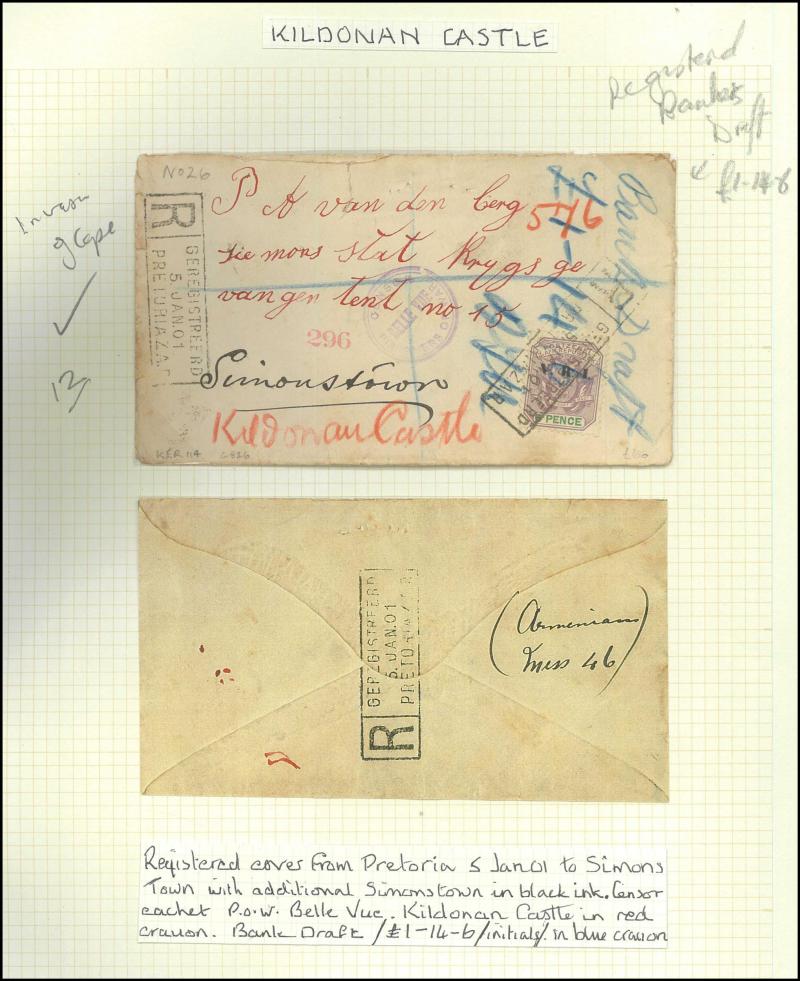 KILDONAN CASTLE
Registered
Bankers
Draft
£1-14-6
Invasn
of Cape
12
No 26
R
GEREGISTREERD
5.JAN.01
PRETORIA Z.A.R
P A van den berg
sie mors stat Krygs ge
vanger tent no 15
576
296
BELLE
Simonstown
Kildonan Castle
Bank Draft
£1-14-6
V.R.I.
PENCE
KER 114
£100
R
GEREGISTREERD
5.JAN.01
PRETORIA Z.A.R
(Armenian
Mess 46)
Registered cover from Pretoria 5 Jan 01 to Simons
Town with additional Simonstown in black ink. Censor
cachet P.O.W. Belle Vue. Kildonan Castle in red
crayon. Bank Draft /£1-14-6/initials/ in blue crayon